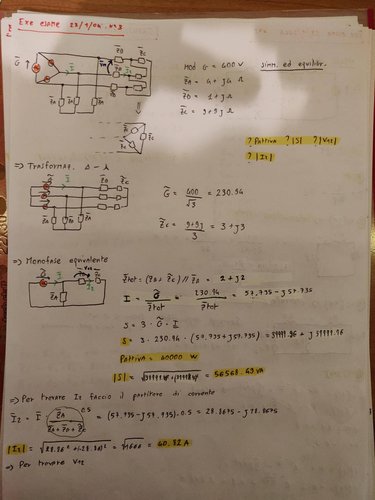 Exe esame 22/1/04. n°3
Mod G = 400 V simm. ed equilibr.
Z̄A = 4 + j4 Ω
Z̄D = 1 + j Ω
Z̄C = 9 + 9j Ω
? Pattiva ? |S| ? |V12|
? |I2|
=> Trasformaz. Δ - λ
G̃ = 400/√3 = 230.94
Z̃C = 9+9j/3 = 3 + j3
=> Monofase equivalente
Z̄tot = (Z̄D + Z̄C) // Z̄A = 2 + j2
I = G̃/Z̄tot = 230.94/Z̄tot = 57,735 - j 57,735
S = 3 · G̃ · I
S = 3 · 230.94 · (57,735 + j57,735) = 39999.96 + j 39999.96
Pattiva = 40000 W
= 56568.49 VA
=> Per trovare I2 faccio il partitore di corrente
Ī2 = Ī · Z̄A/Z̄A + Z̄D + Z̄C 0.5 = (57,735 - j 57,735) · 0.5 = 28.8675 - j 28.8675
= 40.82 A
=> Per trovare V12